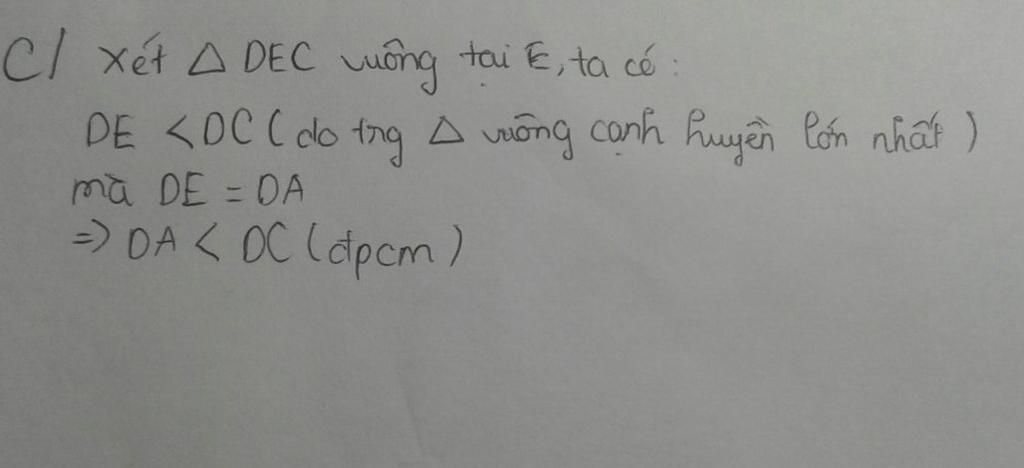 C/ Xét △ DEC vuông tại E, ta có:
DE < DC (do tng △ vuông cạnh huyền lớn nhất)
mà DE = DA
=> DA < DC (đpcm)